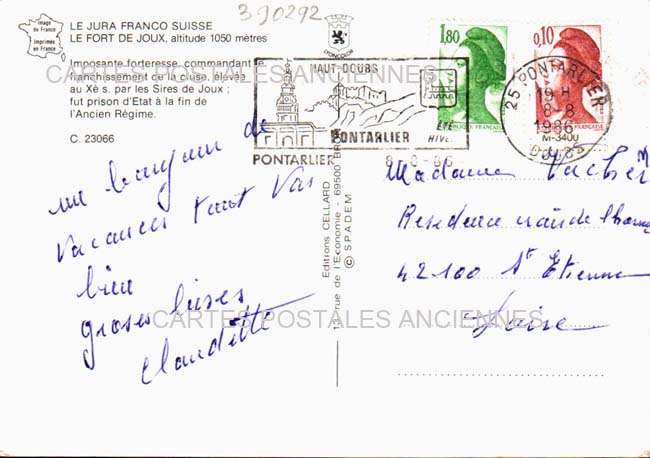 390292
Image
de France
Imprimée
en France
LE JURA FRANCO SUISSE
LE FORT DE JOUX, altitude 1050 mètres
Imposante forteresse commandant
franchissement de la cluse, élevée
au Xè s. par les Sires de Joux ;
fut prison d'Etat à la fin de
l'Ancien Régime.
C. 23066
CARTES POSTALES ANCIENNES
HAUT-DOUBS
PONTARLIER
ÉTÉ
HIVER
PONTARLIER
8-8-86
1,80
0,10
RÉPUBLIQUE FRANÇAISE
25 PONTARLIER
19 H
8-8
1986
M-3400
DOUBS
un bonjour de
vacances tout va
bien
groses bises
Claudette
Editions CELLARD
13, rue de l'Economie - 69500 BRON
© S.P.A.D.E.M.
Madame Vacher M
Residence
42100 St Etienne
Loire
CARTES POSTALES ANCIENNES